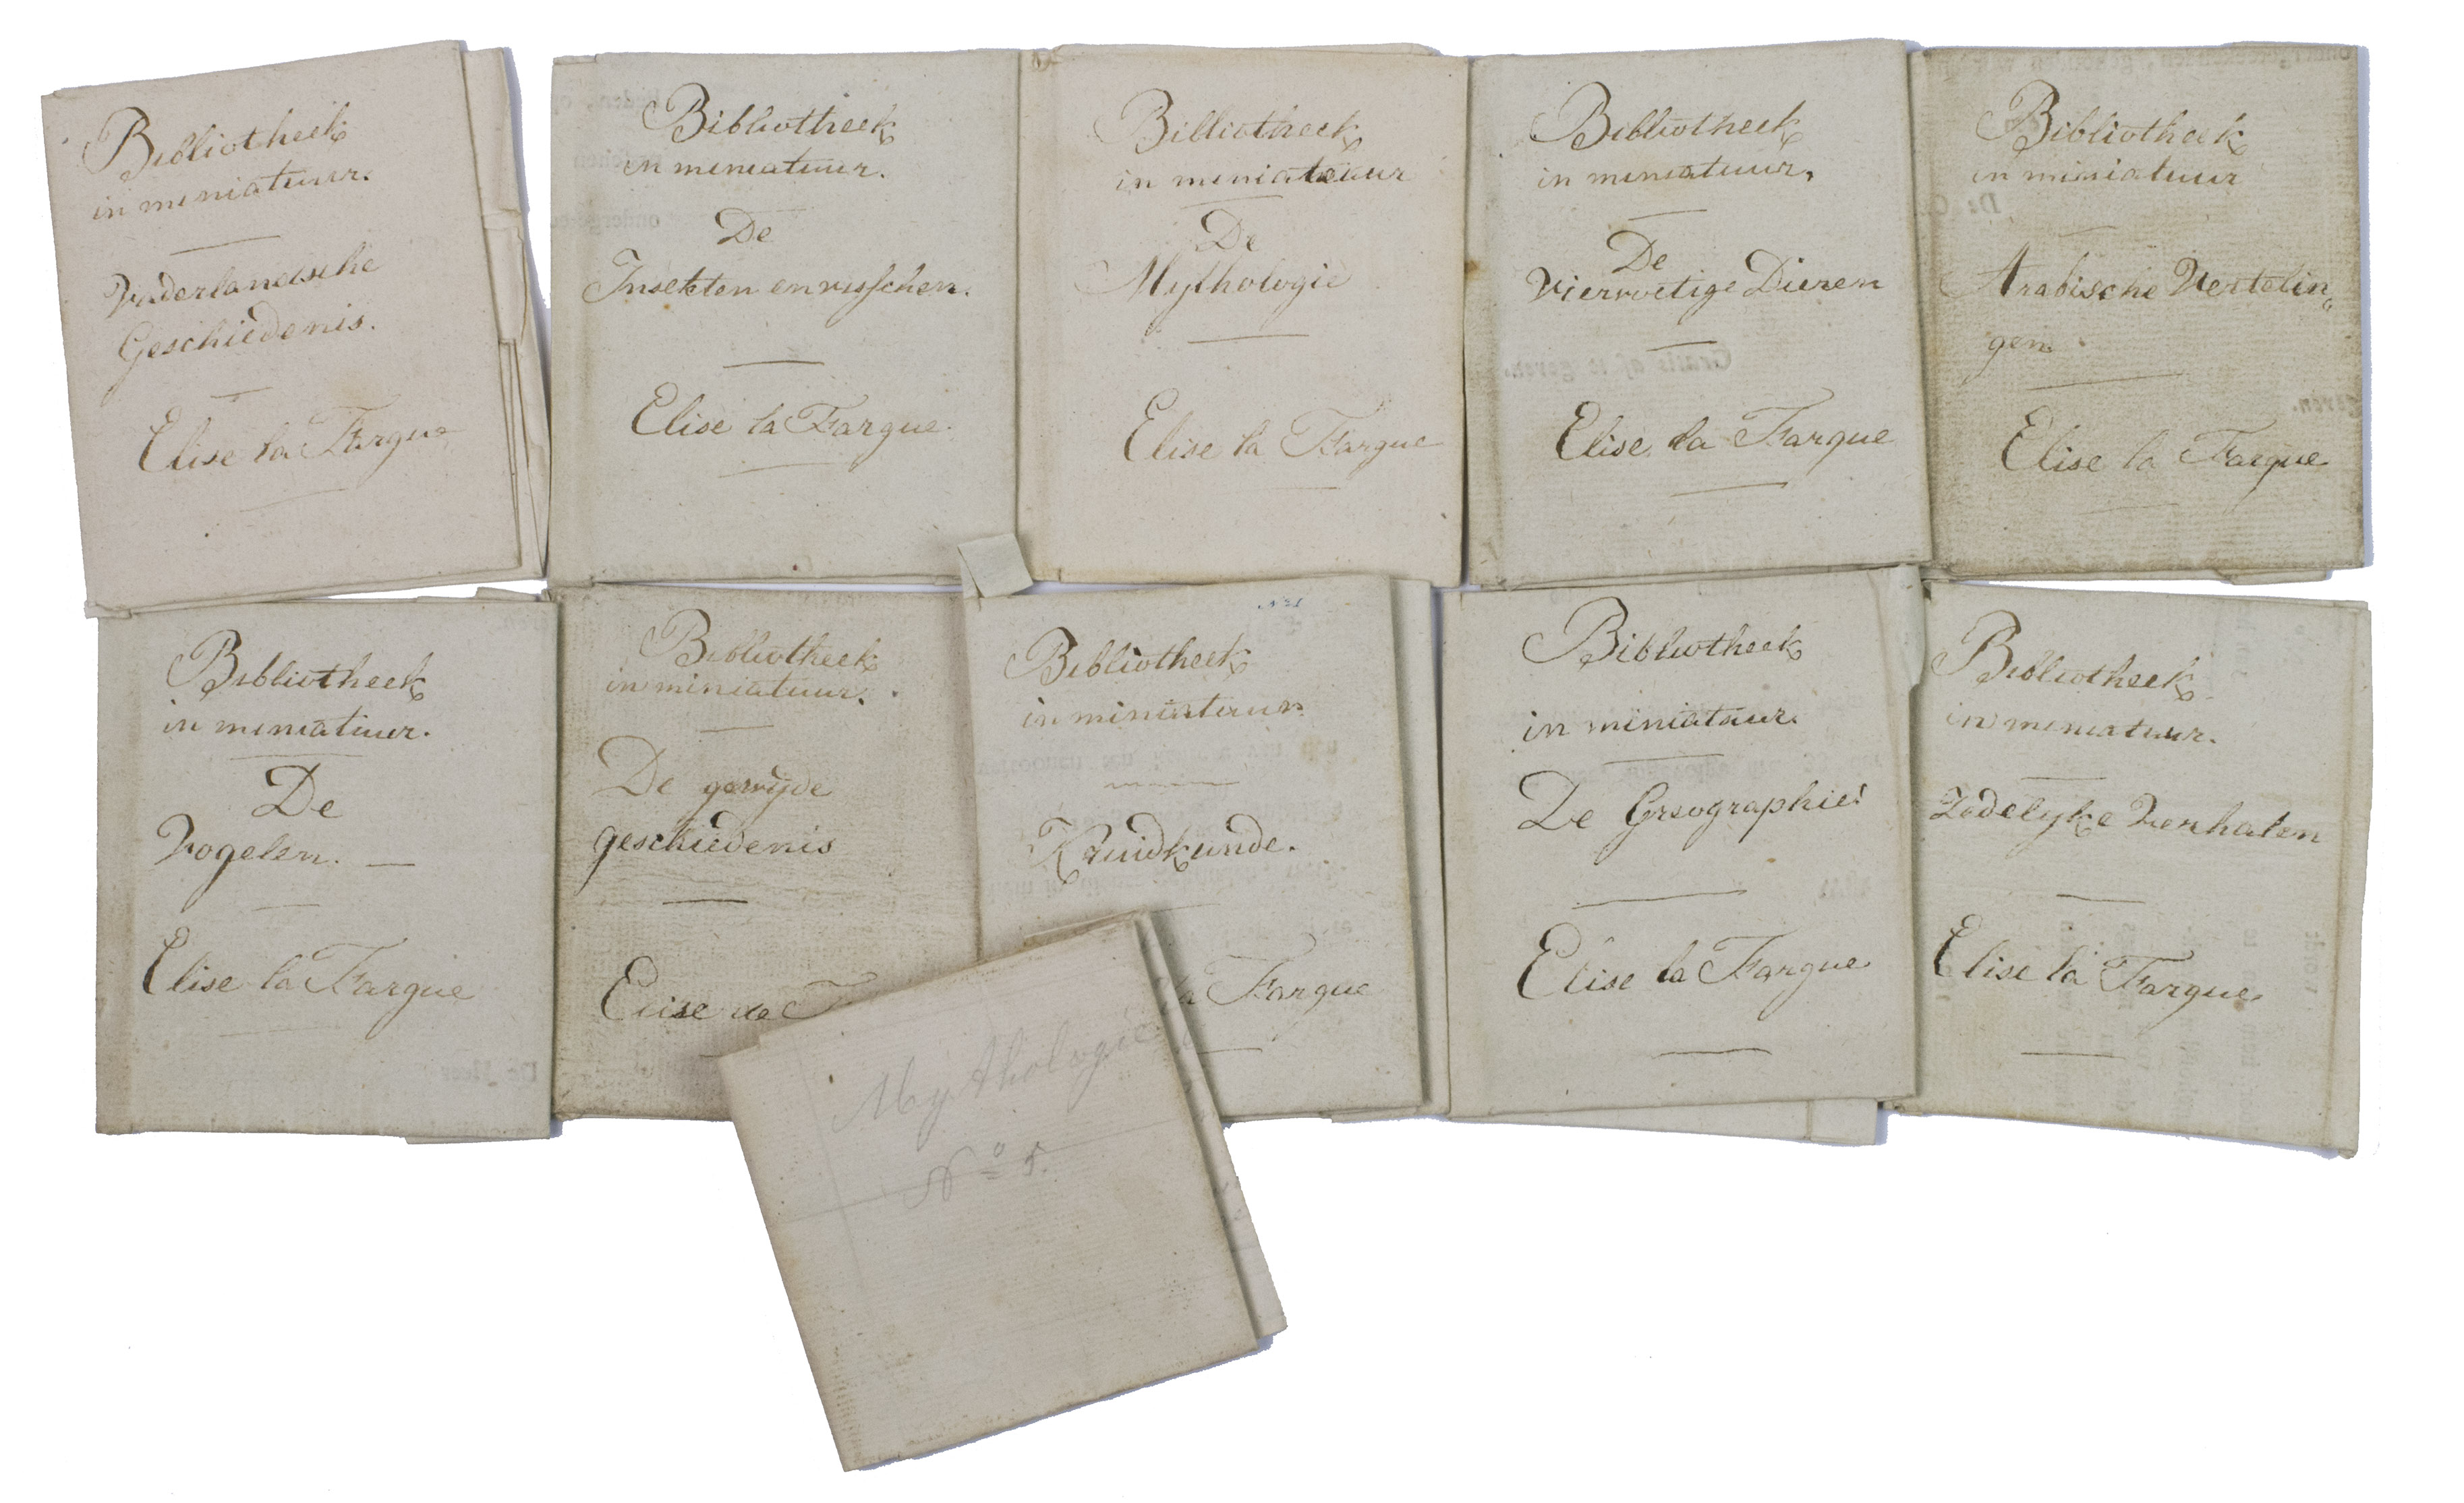 Bibliotheek
in miniatuur.
Vaderlandsche
Geschiedenis.
Elise la Fargue
Bibliotheek
in miniatuur.
De
Insekten en visschen.
Elise la Fargue.
Bibliotheek
in miniatuur
De
Mythologie
Elise la Fargue
Bibliotheek
in miniatuur.
De
Viervoetige Dieren
Elise la Fargue
Bibliotheek
in miniatuur
Arabische Vertelin„
gen.
Elise la Fargue
Bibliotheek
in miniatuur.
De
Vogelen. —
Elise la Fargue
Bibliotheek
in miniatuur.
De gewijde
geschiedenis
Elise la F
No 1
Bibliotheek
in miniatuur
Kruidkunde.
la Fargue
Bibliotheek
in miniatuur.
De Geographie
Elise la Fargue
Bibliotheek
in miniatuur.
Zedelyke Verhalen
Elise la Fargue.
Mythologie
No 5.